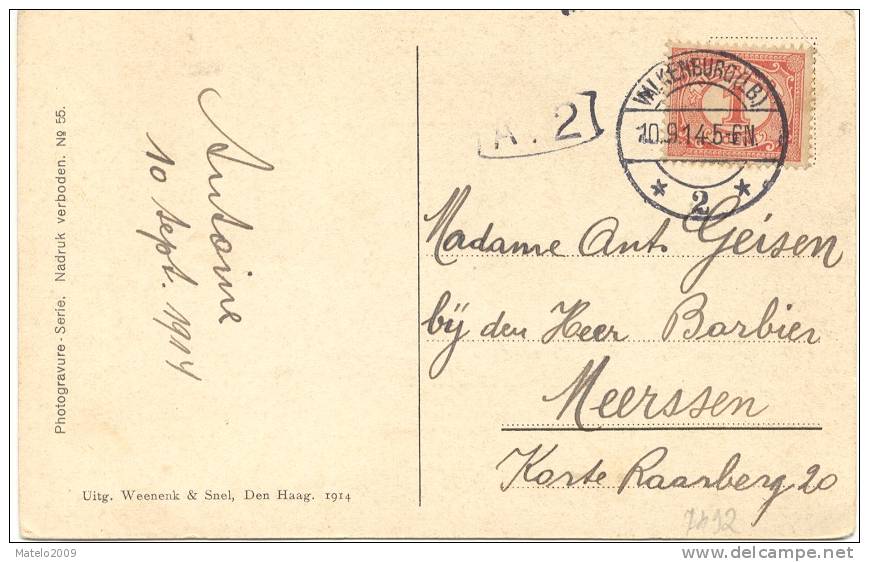 Photogravure - Serie. Nadruk verboden. No 55.
Antoine
10 Sept. 1914
Uitg. Weenenk & Snel, Den Haag. 1914
A. 2
VALKENBURG (LB)
10.9.14.5-6N.
* 2 *
1
Madame Ant. Geisen
bÿ den Heer Barbier
Meerssen
Korte Raarberg 20
7492
Matelo2009
www.delcampe.net